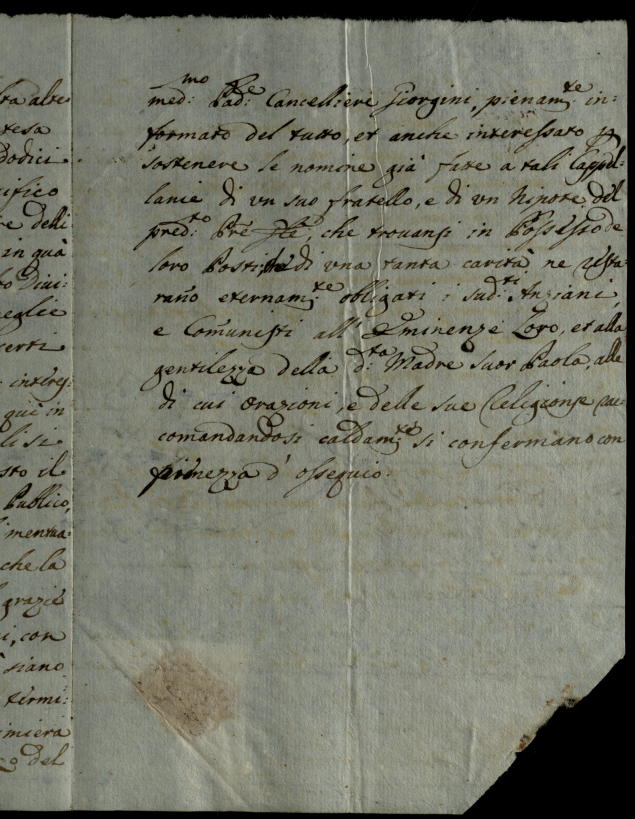 ta alte
tesa
Dodici
cifico
re deli
in quà
to Divi:
eglie
certi
interes
qui in
li si
sto il
Publico,
mentua
che la
grazie
i, con
siano
termi:
imiera
del
med:mo Pad:e Cancelliere Giorgini, pienam:te in:
formato del tutto, et anche interessato p
sostenere le nomine già fatte a tali Cappel:
lanie di vn suo fratello, e di vn Nipote del
pred:to Pre che trouansi in Possesso de
loro Posti di vna tanta carità ne resta
rano eternam:te obligati i sud:ti Anziani,
e Comunisti all' Eminenze Loro, et alla
gentilezza della d:ta Madre Suor Paola, alle
di cui orazioni, e delle sue Religiose rac:
comandandosi caldam:te si confermano con
pienezza d' ossequio.